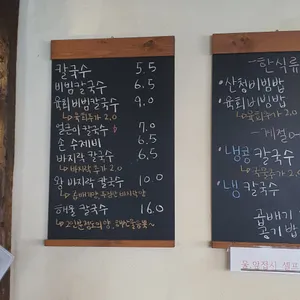 칼국수 5.5
비빔칼국수 6.5
육회비빔칼국수 9.0
↳육회추가 2.0
얼큰이칼국수 7.0
손 수제비 6.5
바지락 칼국수 6.5
↳바지락추가 2.0
왕 바지락 칼국수 10.0
해물 칼국수 16.0
~한식류
·산청비빔밥
·육회비빔밥
↳육회추가 2.0
~계절
·냉콩칼국수
·냉 칼국수
곱배기
공기밥